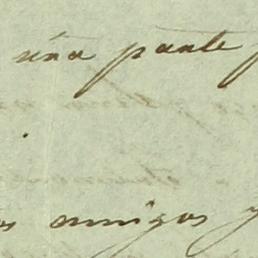 una parte
os amigos y